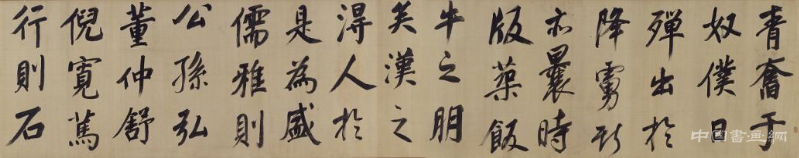 青奮于
奴僕日
殫出於
降虜斯
亦曩時
版築飯
牛之朋
矣漢之
得人於
是為盛
儒雅則
公孫弘
董仲舒
倪寬篤
行則石
中国書画網